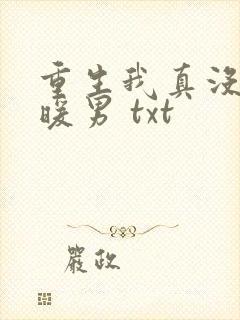 重生我真没
暖男 txt
严政